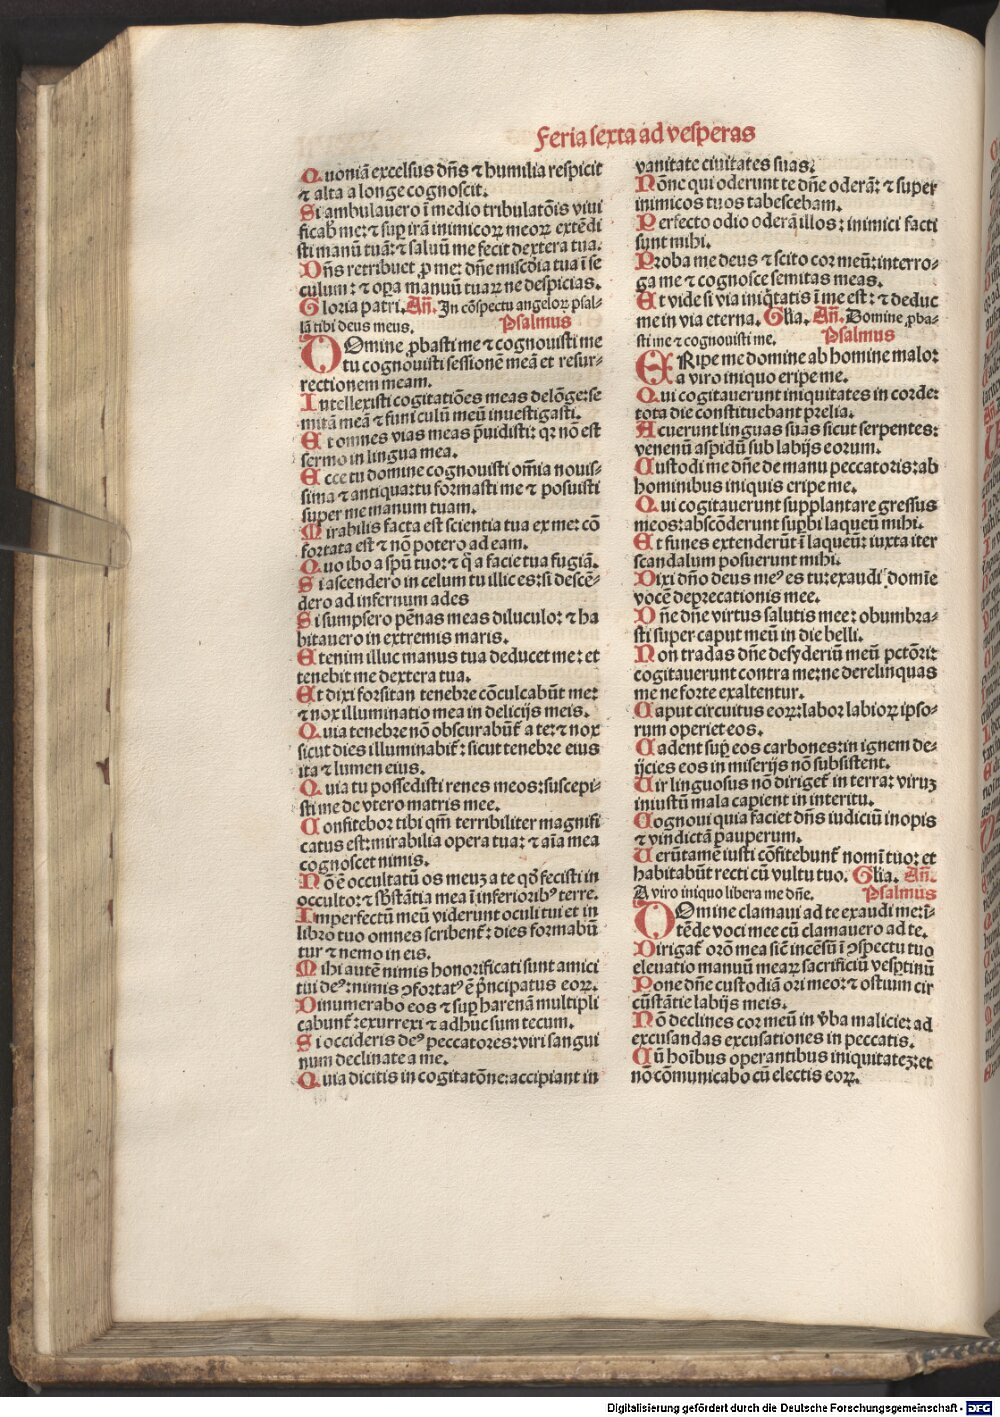 Feria sexta ad vesperas
Quoniã excelsus dñs ⁊ humilia respicit
⁊ alta a longe cognoscit.
Si ambulauero ĩ medio tribulatõis viui
ficab̃ me: ⁊ suꝑ irã inimicoꝝ meoꝝ extẽdi
sti manũ tuã: ⁊ saluũ me fecit dextera tua.
Dñs retribuet ꝓ me: dñe misc̃dia tua ĩ se
culum: ⁊ oꝑa manuũ tuaꝝ ne despicias.
Gloria patri. Añ. In cõspectu angeloꝝ psal-
lã tibi deus meus. Psalmus
DOmine ꝓbasti me ⁊ cognouisti me
tu cognouisti sessionẽ meã et resur-
rectionem meam.
Intellexisti cogitatiões meas delõge: se
mitã meã ⁊ funiculũ meũ inuestigasti.
Et omnes vias meas p̃uidisti: qꝛ nõ est
sermo in lingua mea.
Ecce tu domine cognouisti om̃ia nouis-
sima ⁊ antiqua: tu formasti me ⁊ posuisti
super me manum tuam.
Mirabilis facta est scientia tua ex me: cõ
fortata est ⁊ nõ potero ad eam.
Quo ibo a spũ tuo: ⁊ q̃ a facie tua fugiã.
Si ascendero in celum tu illic es: si descẽ-
dero ad infernum ades
Si sumpsero pẽnas meas diluculo: ⁊ ha
bitauero in extremis maris.
Etenim illuc manus tua deducet me: et
tenebit me dextera tua.
Et dixi forsitan tenebre cõculcabũt me:
⁊ nox illuminatio mea in delicijs meis.
Quia tenebre nõ obscurabũt̃ a te: ⁊ nox
sicut dies illuminabit̃: sicut tenebre eius
ita ⁊ lumen eius.
Quia tu possedisti renes meos: suscepi-
sti me de vtero matris mee.
Confitebor tibi qm̃ terribiliter magnifi
catus est: mirabilia opera tua: ⁊ aĩa mea
cognoscet nimis.
Nõ ẽ occultatũ os meuꝫ a te qd̃ fecisti in
occulto: ⁊ sb̃stãtia mea ĩ inferioribꝰ terre.
Imperfectũ meũ viderunt oculi tui et in
libro tuo omnes scribent̃: dies formabũ
tur ⁊ nemo in eis.
Mihi autẽ nimis honorificati sunt amici
tui deꝰ: nimis ꝯfortatꝰ ẽ p̃ncipatus eoꝝ.
Dinumerabo eos ⁊ suꝑ harenã multipli
cabunt̃: exurrexi ⁊ adhuc sum tecum.
Si occideris deꝰ peccatores: viri sangui
num declinate a me.
Quia dicitis in cogitatõne: accipiant in
vanitate ciuitates suas.
Nõne qui oderunt te dñe oderã: ⁊ super
inimicos tuos tabescebam.
Perfecto odio oderã illos: inimici facti
sunt mihi.
Proba me deus ⁊ scito cor meũ: interro-
ga me ⁊ cognosce semitas meas.
Et vide si via iniq̃tatis ĩ me est: ⁊ deduc
me in via eterna. Gl̃ia. Añ. Domine ꝓba-
sti me ⁊ cognouisti me. Psalmus
ERipe me domine ab homine malo:
a viro iniquo eripe me.
Qui cogitauerunt iniquitates in corde:
tota die constituebant prelia.
Acuerunt linguas suas sicut serpentes:
venenũ aspidũ sub labijs eorum.
Custodi me dñe de manu peccatoris: ab
hominibus iniquis eripe me.
Qui cogitauerunt supplantare gressus
meos: abscõderunt supb̃i laqueũ mihi.
Et funes extenderũt ĩ laqueũ: iuxta iter
scandalum posuerunt mihi.
Dixi dño deus meꝰ es tu: exaudi domĩe
vocẽ deprecationis mee.
Dñe dñe virtus salutis mee: obumbra-
sti super caput meũ in die belli.
Non tradas dñe desyderiũ meũ pctõri:
cogitauerunt contra me: ne derelinquas
me ne forte exaltentur.
Caput circuitus eoꝝ: labor labioꝝ ipso-
rum operiet eos.
Cadent suꝑ eos carbones: in ignem de-
ijcies eos in miserijs nõ subsistent.
Vir linguosus nõ diriget̃ in terra: viruꝫ
iniustũ mala capient in interitu.
Cognoui quia faciet dñs iudiciũ inopis
⁊ vindictã pauperum.
Verũtamẽ iusti cõfitebunt̃ nomĩ tuo: et
habitabũt recti cũ vultu tuo. Gl̃ia. Añ.
A viro iniquo libera me dñe. Psalmus
DOmine clamaui ad te exaudi me: ĩ-
tẽde voci mee cũ clamauero ad te.
Dirigat̃ orõ mea sic̃ incẽsũ ĩ ꝯspectu tuo
eleuatio manuũ meaꝝ sacrificiũ vesꝑtinũ
Pone dñe custodiã ori meo: ⁊ ostium cir
cũstãtie labijs meis.
Nõ declines cor meũ in v̓ba malicie: ad
excusandas excusationes in peccatis.
Cũ hoĩbus operantibus iniquitateꝫ: et
nõ cõmunicabo cũ electis eoꝝ.
Digitalisierung gefördert durch die Deutsche Forschungsgemeinschaft - DFG